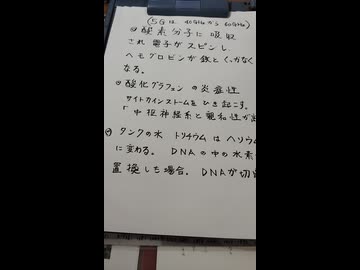 (5Gは 40GHzから60GHz)
◎酸素分子に吸収
され 電子がスピンし、
ヘモグロビンが鉄とくっかなく
なる。
◎酸化グラフェンの炎症性
サイトカインストームをひき起こす。
「中枢神経系と親和性が
◎タンクの水 トリチウムはヘリウム
に変わる。DNAの中の水素
置換した場合。DNAが切